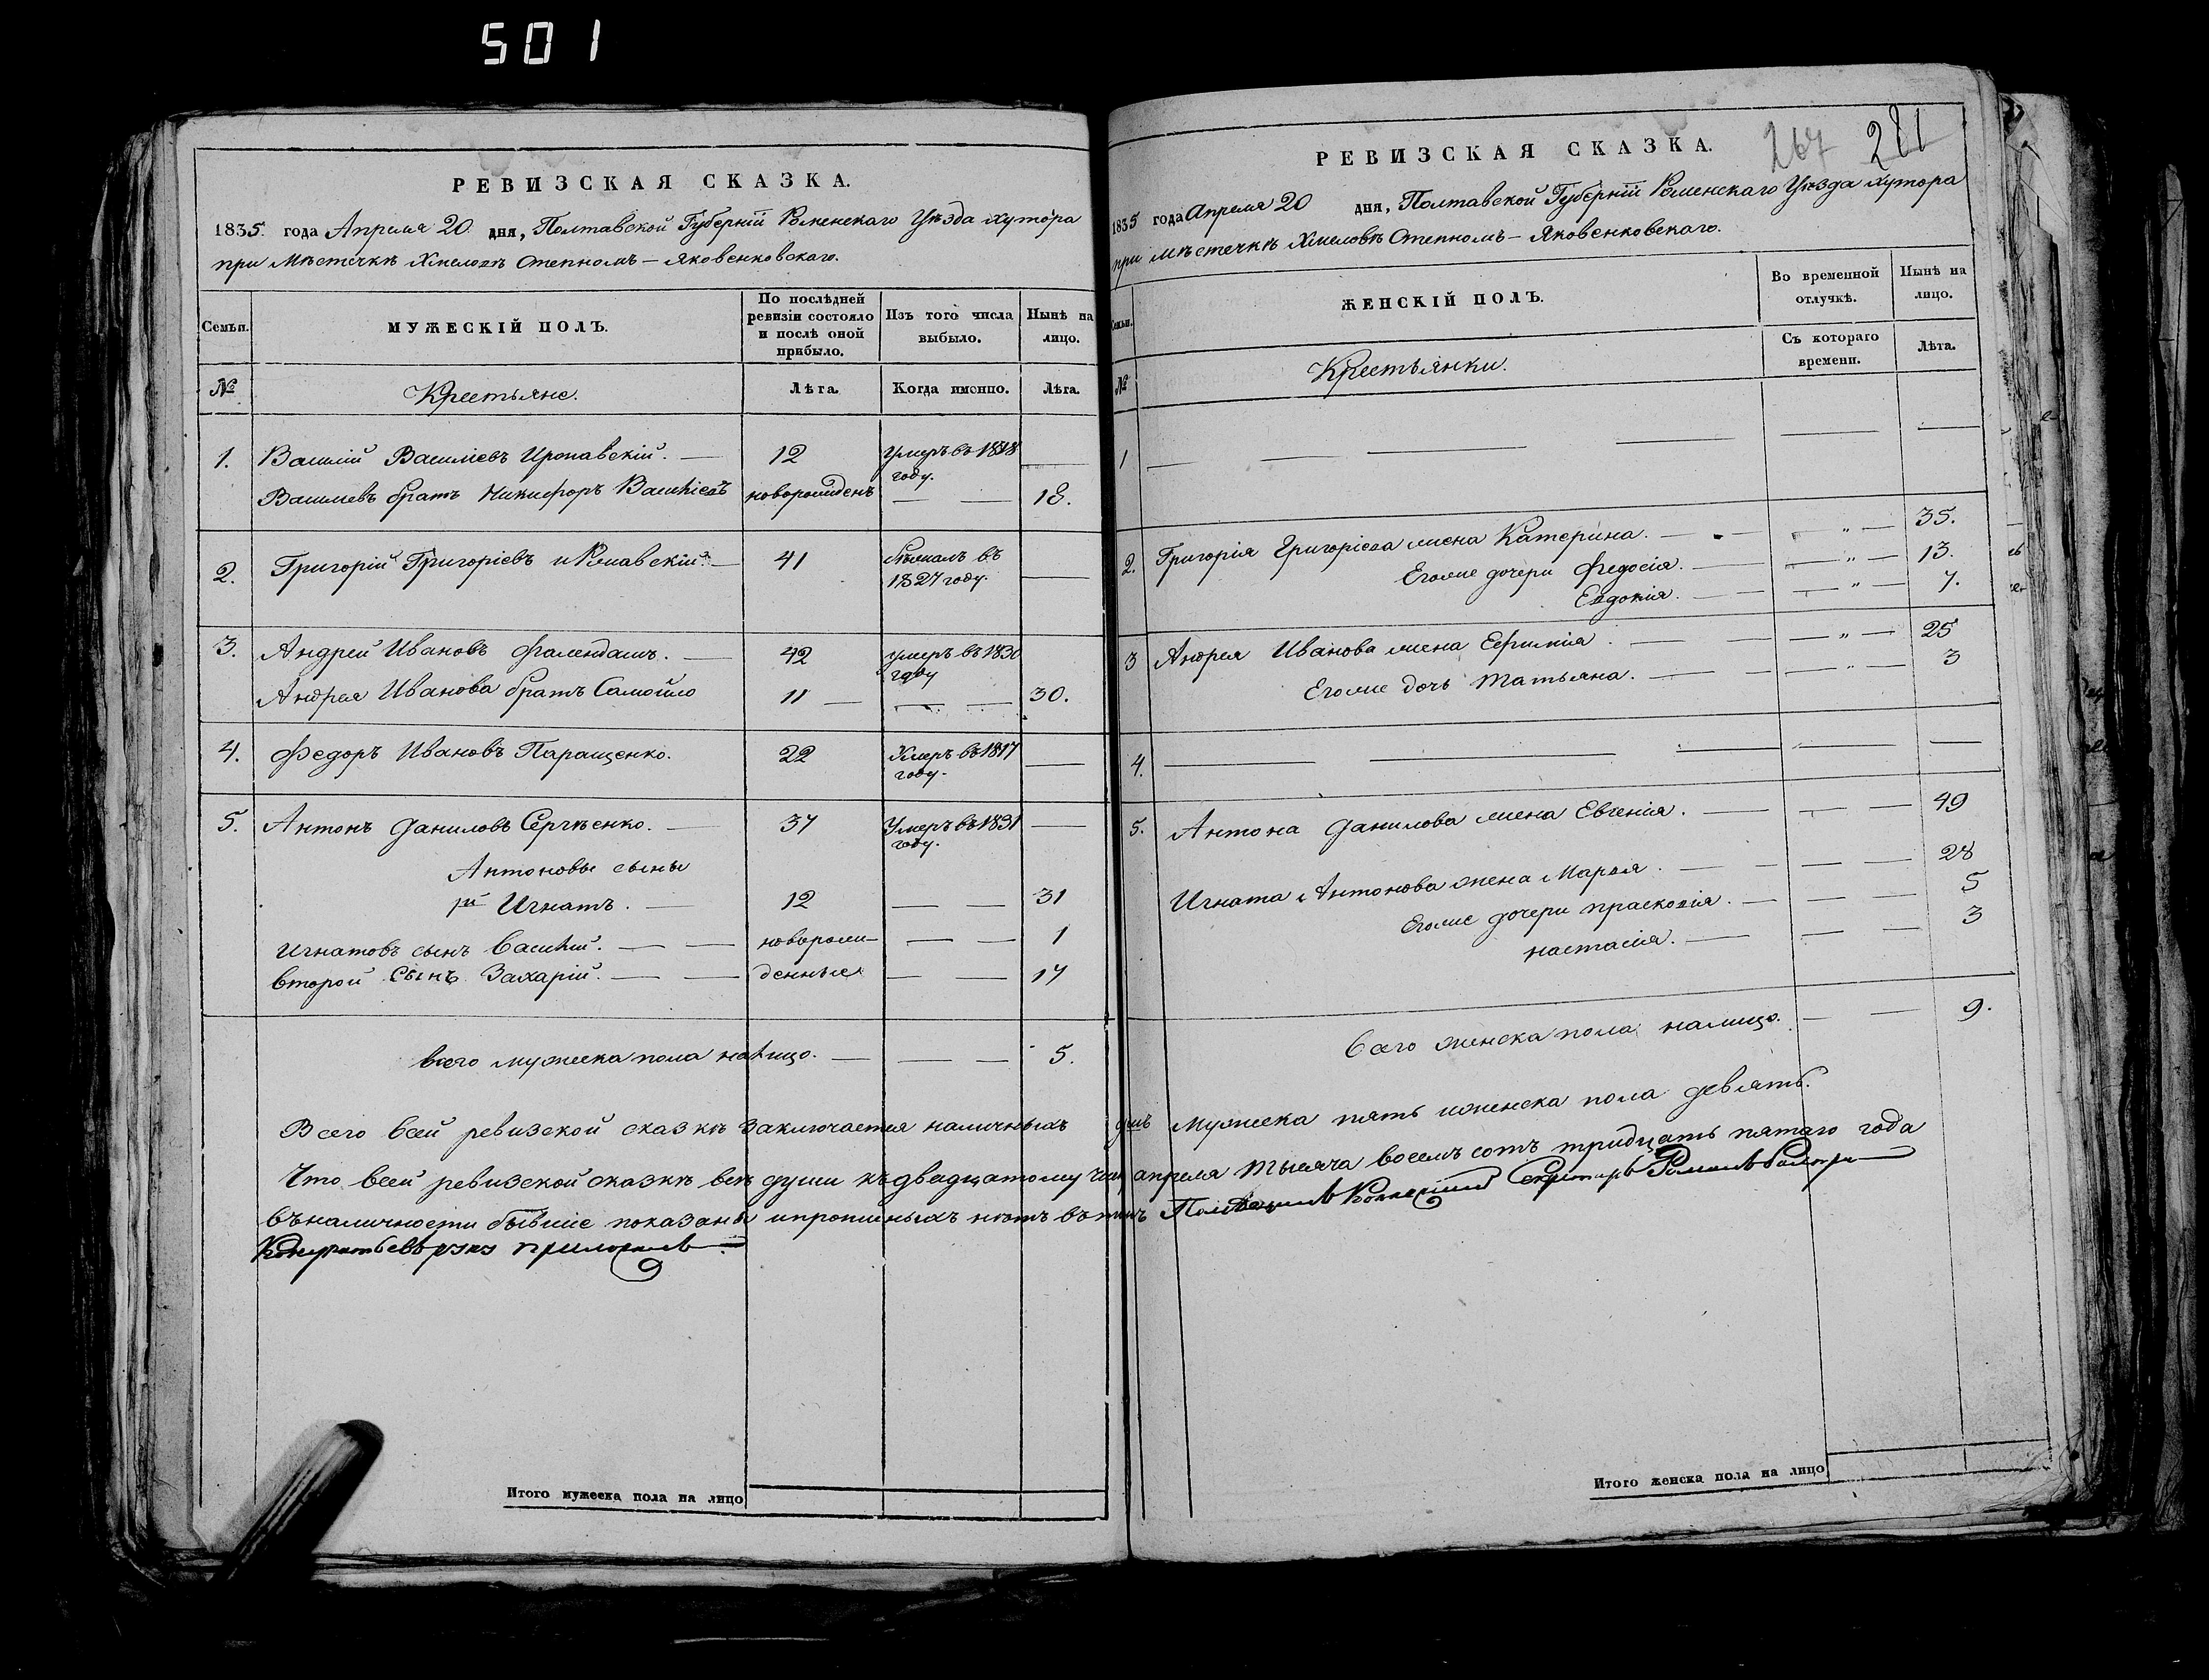 501
РЕВИЗСКАЯ СКАЗКА.
1835. года Апреля 20. дня, Полтавской Губерніи Роменскаго Уѣзда хутора
при Мѣстечкѣ Хмеловѣ Степномъ — Яковенковскаго.
Семьи. МУЖЕСКІЙ ПОЛЪ. По послѣдней ревизіи состояло и послѣ оной прибыло. Изъ того числа выбыло. Нынѣ на лицо.
№ Крестьяне. Лѣта. Когда именно. Лѣта.
1. Василій Василіевъ 12 Умеръ въ 1818 году.
Василиевъ братъ Никифоръ Василіевъ новорожденъ — — 18.
2. Григорій Григоріевъ 41 Бѣжалъ въ 1827 году. —
3. Андрей Ивановъ — 42 умеръ въ 1830 году
Андрея Иванова братъ Самойло 11 — — — 30.
4. Федоръ Ивановъ Паращенко. 22 Умеръ въ 1817 году. —
5. Антонъ Даниловъ Сергѣенко. — 37 Умеръ въ 1831 году. —
Антоновы сыны
1й Игнатъ. — 12 — — 31
Игнатовъ сынъ Василій. — — новорож- — — 1
второй Сынъ Захарій. — — денные — — 17
Всего мужеска пола налицо. — — — 5.
Итого мужеска пола на лицо
267 281
РЕВИЗСКАЯ СКАЗКА.
1835 года Апреля 20 дня, Полтавской Губерніи Роменскаго Уѣзда хутора
при мѣстечкѣ Хмеловѣ Степномъ — Яковенковскаго.
Семьи. ЖЕНСКІЙ ПОЛЪ. Во временной отлучкѣ. Нынѣ на лицо.
№ Крестьянки. Съ котораго времени. Лѣта.
1 — — — — — —
2. Григорія Григоріева жена Катерина. — — „ — 35.
Егоже дочери Федосія. — — „ — 13.
Евдокія. — — — „ — 7.
3 Андрея Иванова жена Ефимія. — — — „ — 25
Егоже дочь Татьяна. — — — „ — 3
4. — — — — —
5. Антона Данилова жена Евгенія. — — — 49
Игната Антонова жена Марья. — — — — 28
Егоже дочери Прасковія. — — — 5
настасія. — — — 3
Всего женска пола налицо. — — 9.
Итого женска пола на лицо
Всего всей ревизской сказкѣ заключается наличныхъ душъ Мужеска пять иженска пола девять.
Что всей ревизской сказкѣ всѣ души къ двадцатому апреля тысяча восемь сотъ тридцать пятаго года
въ наличности бывшие показаны ипрописныхъ нѣтъ въ томъ Секретарь
руку приложилъ